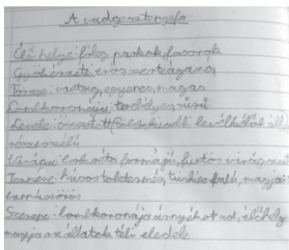 A vadgesztenyefa
Élő helye: főleg parkok, fasorok
Gyökérzete: erős mentágaró
Törzse: vastag, egyenes, magas
Lombkoronája: terebélyes, sűrű
Levele: összetett levélkéből áll,
Virágai: formájú, fürtös virágzat
Termése: húsos toktermés, tüskés falú, magja:
barnásvörös
Szerepe: lombkoronája árnyékot ad, élőhely
magja az állatok téli eledele